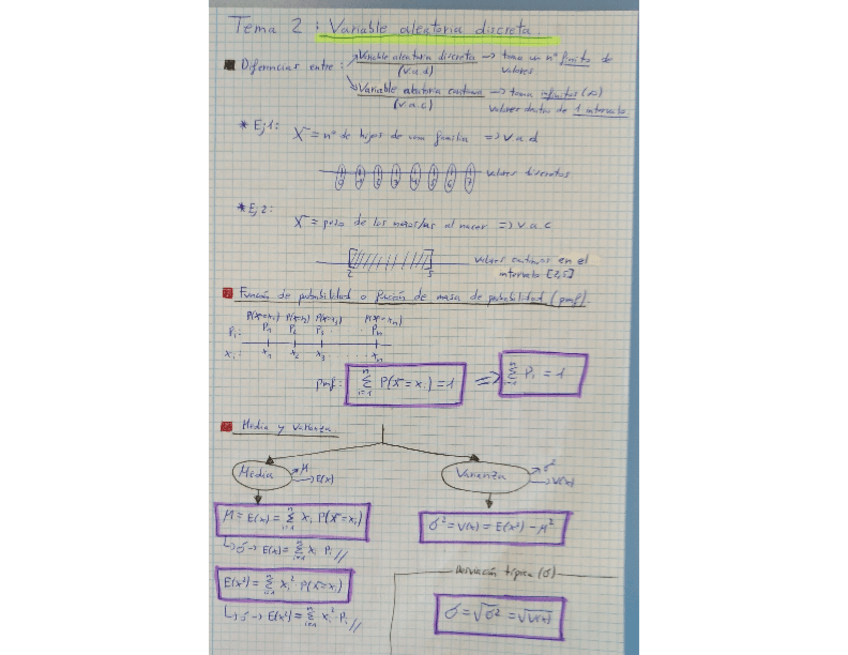 Tema 2 : Variable aleatoria discreta
Diferencias entre : Variable aleatoria discreta → toma un nº finito de
(v.a.d) valores.
Variable aleatoria continua → toma infinitos (∞)
(v.a.c) valores dentro de 1 intervalo
* Ej 1: X = nº de hijos de una familia => v.a.d
0 1 2 3 4 5 6 7 valores discretos
* Ej 2:
X = peso de los niños/as al nacer => v.a.c
[ ] valores continuos en el
2 5 intervalo [2,5]
Función de probabilidad o función de masa de probabilidad (pmf).
P(X=x₁) P(X=x₂) P(X=x₃) P(X=xₙ)
Pᵢ: P₁ P₂ P₃ ... Pₙ
xᵢ: x₁ x₂ x₃ ... xₙ
pmf: Σⁿᵢ₌₁ P(X=xᵢ)=1 => Σⁿᵢ₌₁ Pᵢ = 1
Media y varianza
Media → μ → E(x)
Varianza → σ² → V(x)
μ = E(x) = Σⁿᵢ₌₁ xᵢ P(X=xᵢ)
↳ σ → E(x) = Σⁿᵢ₌₁ xᵢ Pᵢ //
σ² = V(x) = E(x²) - μ²
E(x²) = Σⁿᵢ₌₁ xᵢ² P(X=xᵢ)
↳ σ → E(x²) = Σⁿᵢ₌₁ xᵢ² · Pᵢ //
Desviación típica (σ)
σ = √σ² = √V(x)